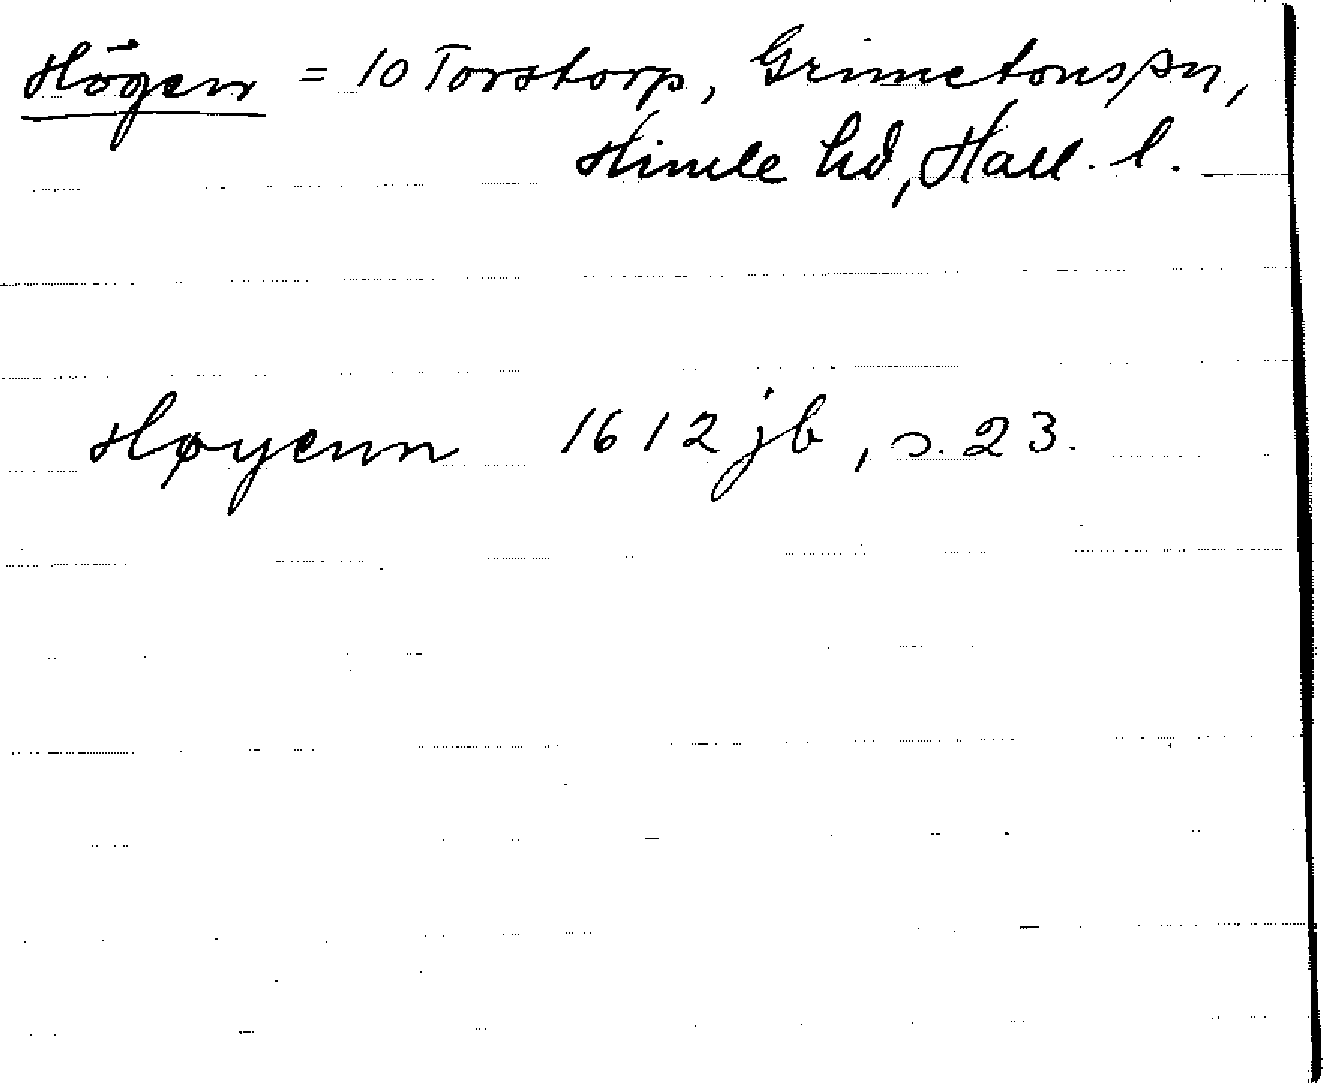 Högen = 10 Torstorp, Grimetons sn,
Himle hd, Hall. l.
Høyenn 1612 jb, s. 23.